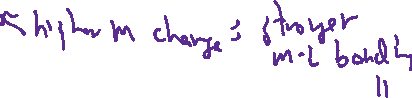 higher m charge : stronger
m-L bonding